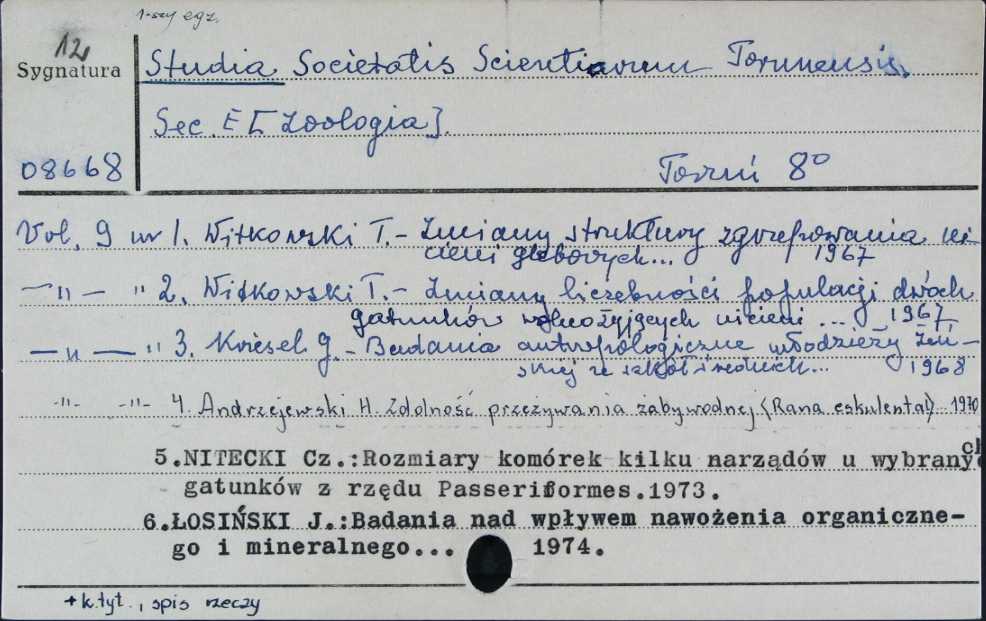 1-szy egz.
12
Sygnatura
Studia Societatis Scientiarum Torunensis.
Sec. E [Zoologia].
08668
Toruń 8°
Vol. 9 nr 1. Witkowski T. - Zmiany struktury zgrupowania ni-
cieni glebowych... 1967
—"— " 2. Witkowski T. - Zmiany liczebności populacji dwóch
gatunków wolnożyjących nicieni ... 1967
—"— " 3. Kriesel G. - Badania antropologiczne młodzieży żeń-
skiej ze szkół średnich... 1968
-"- -"- 4. Andrzejewski H. Zdolność przeżywania żaby wodnej (Rana eskulenta)... 1970
5.NITECKI Cz.:Rozmiary komórek kilku narządów u wybranych
gatunków z rzędu Passeriformes.1973.
6.ŁOSIŃSKI J.:Badania nad wpływem nawożenia organiczne-
go i mineralnego... 1974.
+ k. tyt., spis rzeczy